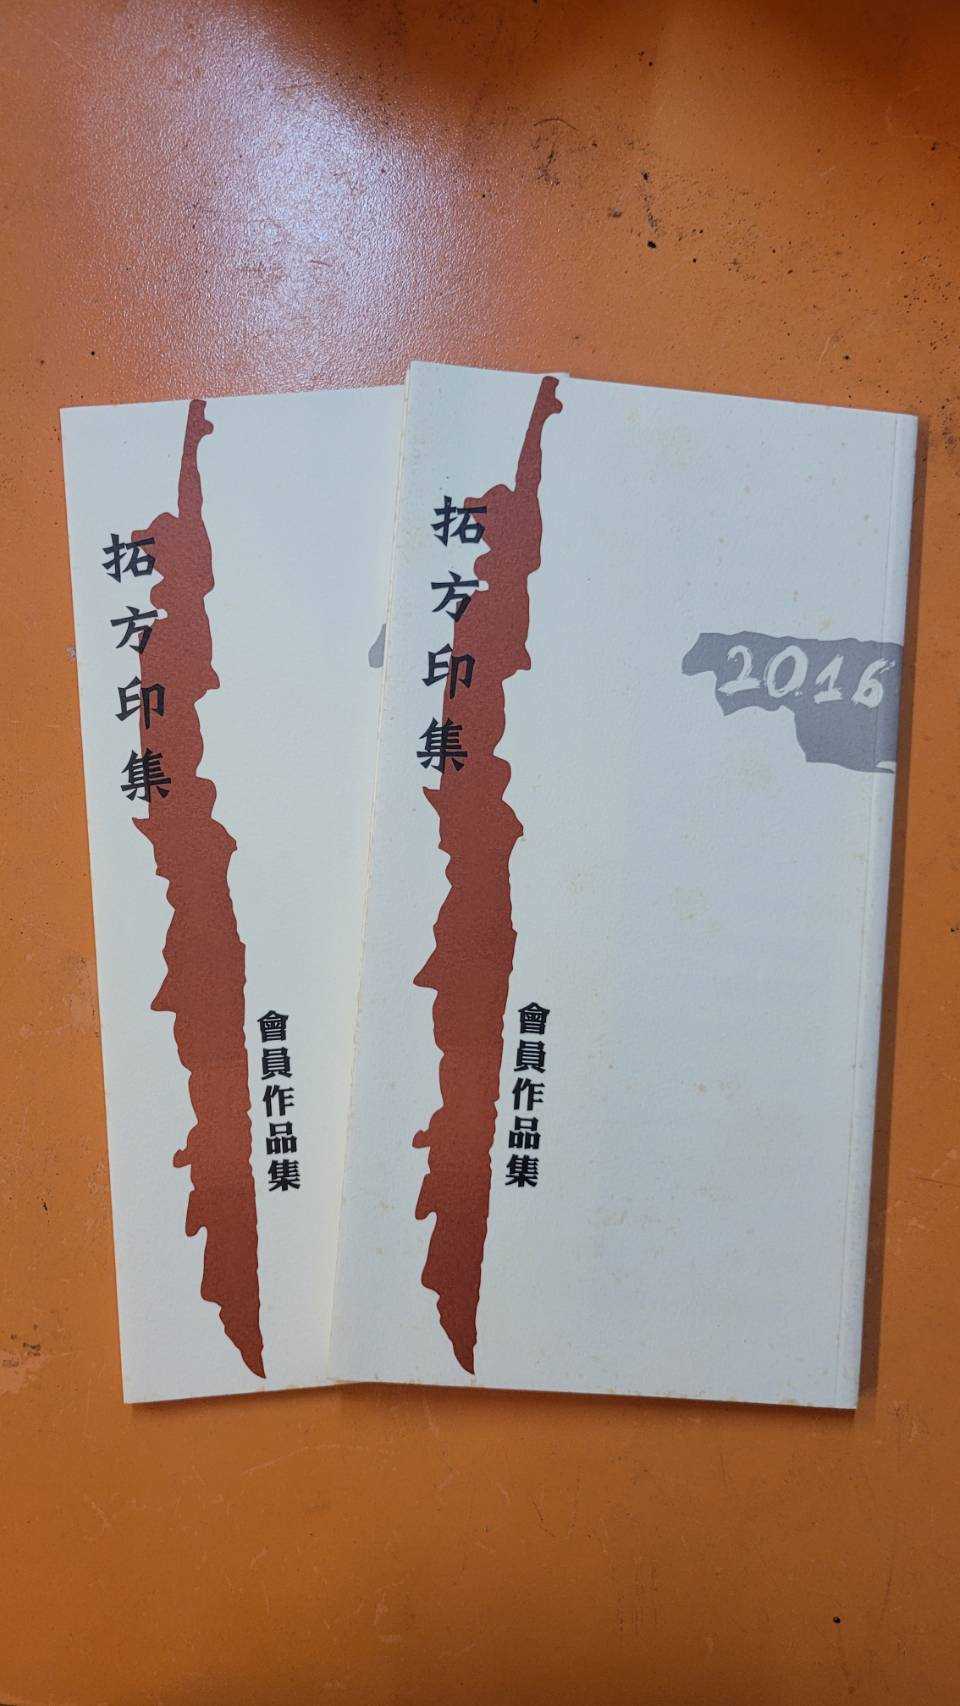 拓方印集
會員作品集
拓方印集
2016
會員作品集